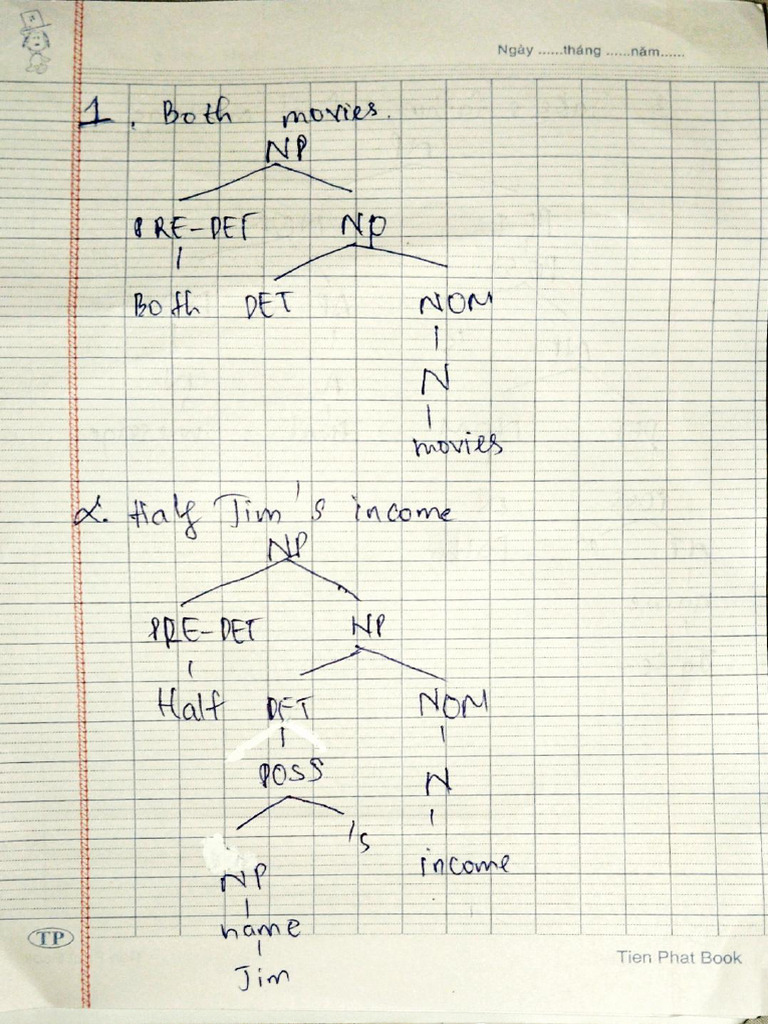 Ngày ......tháng ......năm......
1. Both movies.
NP
PRE-DET NP
Both DET NOM
N
movies
2. Half Jim's income
NP
PRE-DET NP
Half DET NOM
POSS N
's
NP income
name
Jim
TP Tien Phat Book